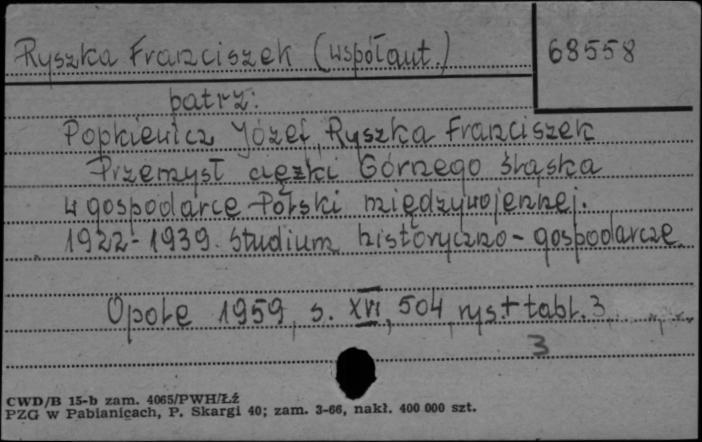 Ryszka Franciszek (współaut.)
68558
patrz:
Popkiewicz Józef, Ryszka Franciszek
Przemysł ciężki Górnego Śląska
w gospodarce Polski międzywojennej.
1922-1939. Studium historyczno-gospodarcze
Opole 1959, s. XVI, 504, rys + tabl. 3
3
CWD/B 15-b zam. 4065/PWH/Łź
PZG w Pabianicach, P. Skargi 40; zam. 3-66, nakł. 400 000 szt.